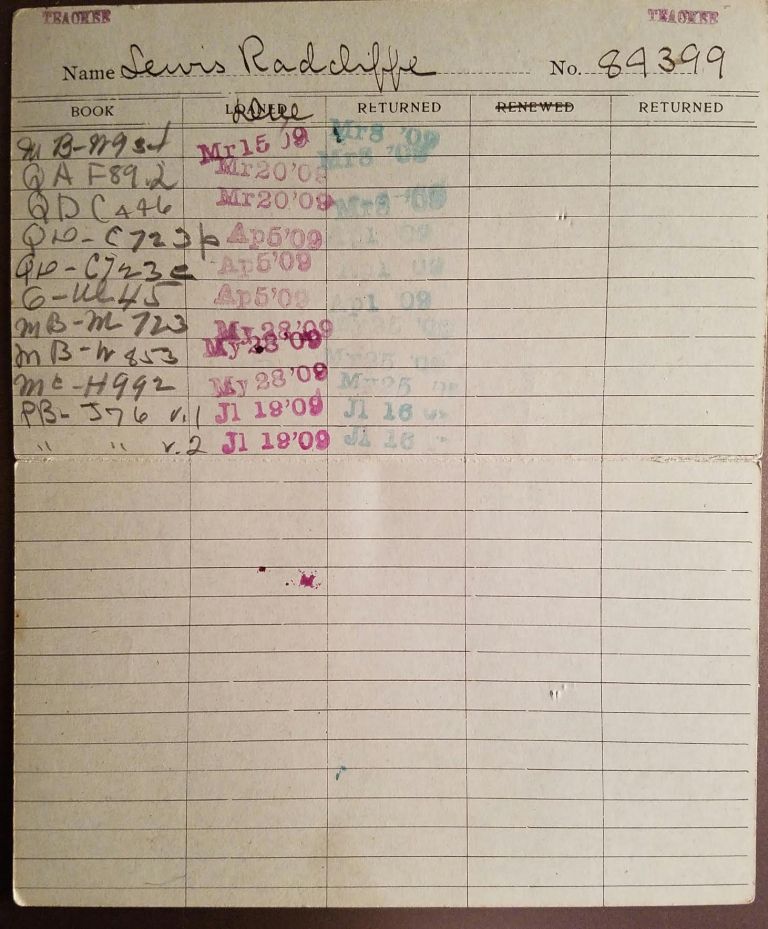 TEACHER TEACHER
Name Lewis Radcliffe No. 84399
BOOK LOANED Due RETURNED RENEWED RETURNED
MB-W934 Mr15 '09 Mr8 '09
QA F89.2 Mr20'09 Mr8 '09
QD C446 Mr20'09 Mr8 '09
QD-C723b Ap5'09 Ap1 09
QD-C723e Ap5'09 Ap1 09
G-W45 Ap5'09 Ap1 09
MB-M723 My28'09 My25 '09
MB-W853 My28'09 My25 '09
MC-H992 My28'09 My25
PB-J76 v.1 Jl 19'09 Jl 16
" " v.2 Jl 19'09 Jl 16